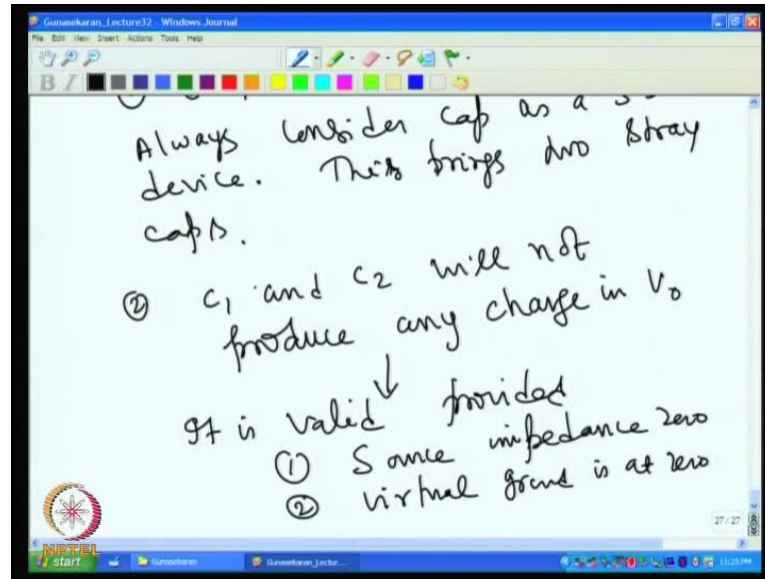 Gunasekaran_Lecture32 - Windows Journal
File Edit View Insert Actions Tools Help
B I
Always consider cap as a
device. This brings two stray
caps.
② C1 and C2 will not
produce any change in V0
It is valid provided
① Source impedance zero
② virtual ground is at zero
27 / 27
NPTEL
start Gunasekaran Gunasekaran_Lectur... 11:25 PM